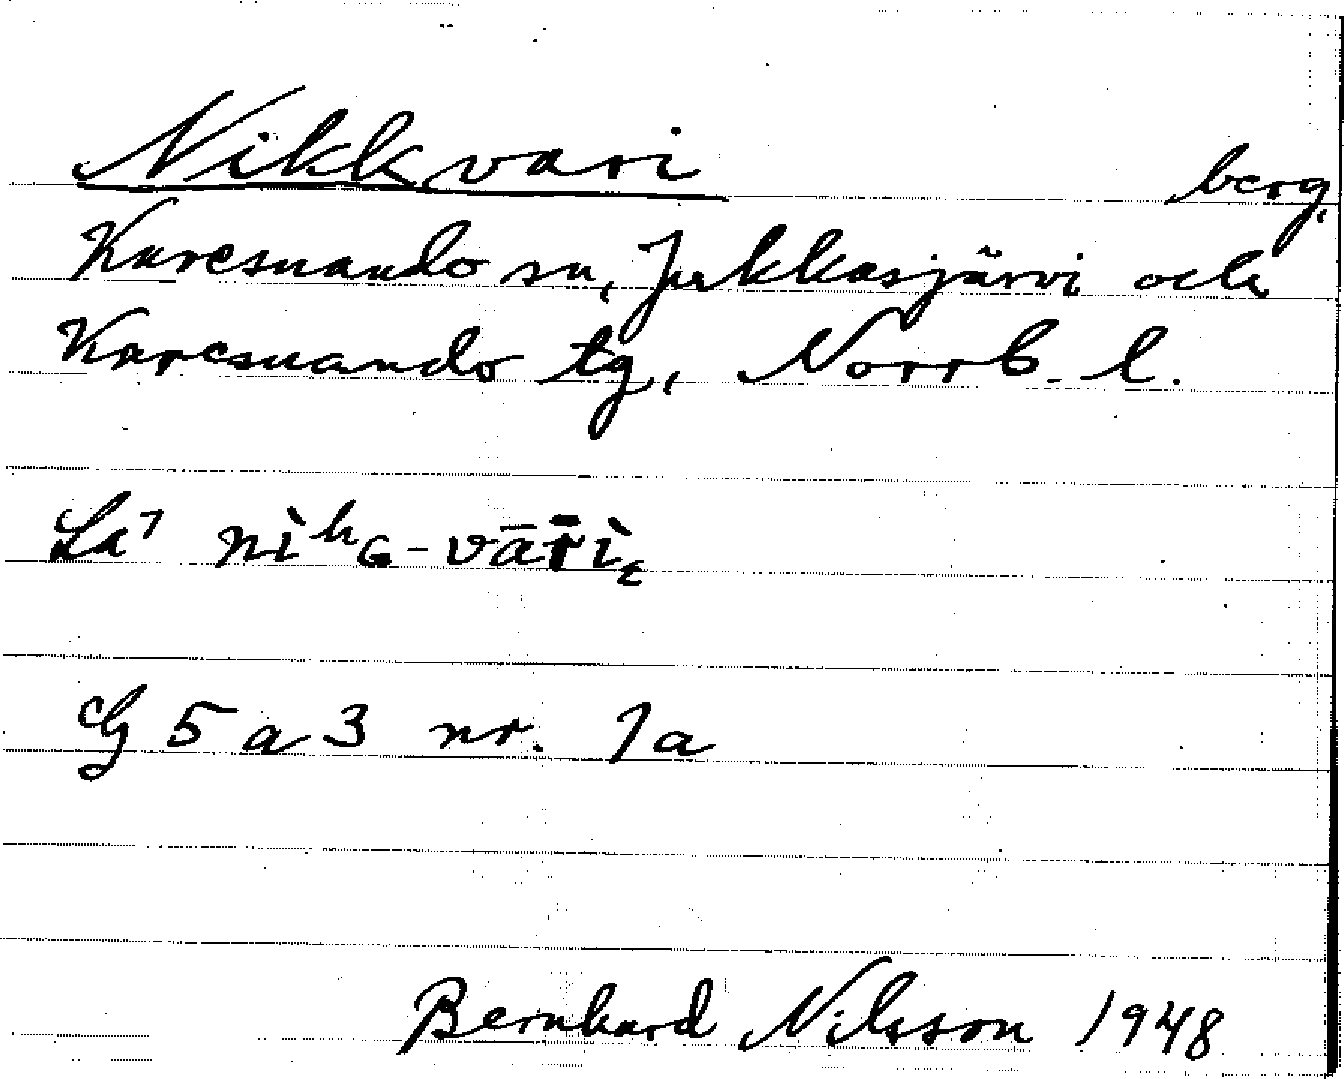 Nikkvari berg,
Karesuando sn, Jukkasjärvi och
Karesuando tg, Norrb. l.
La⁷ nìʰɢ-vār̄ìₑ
G 5 a 3 nr. 1a
Bernhard Nilsson 1948